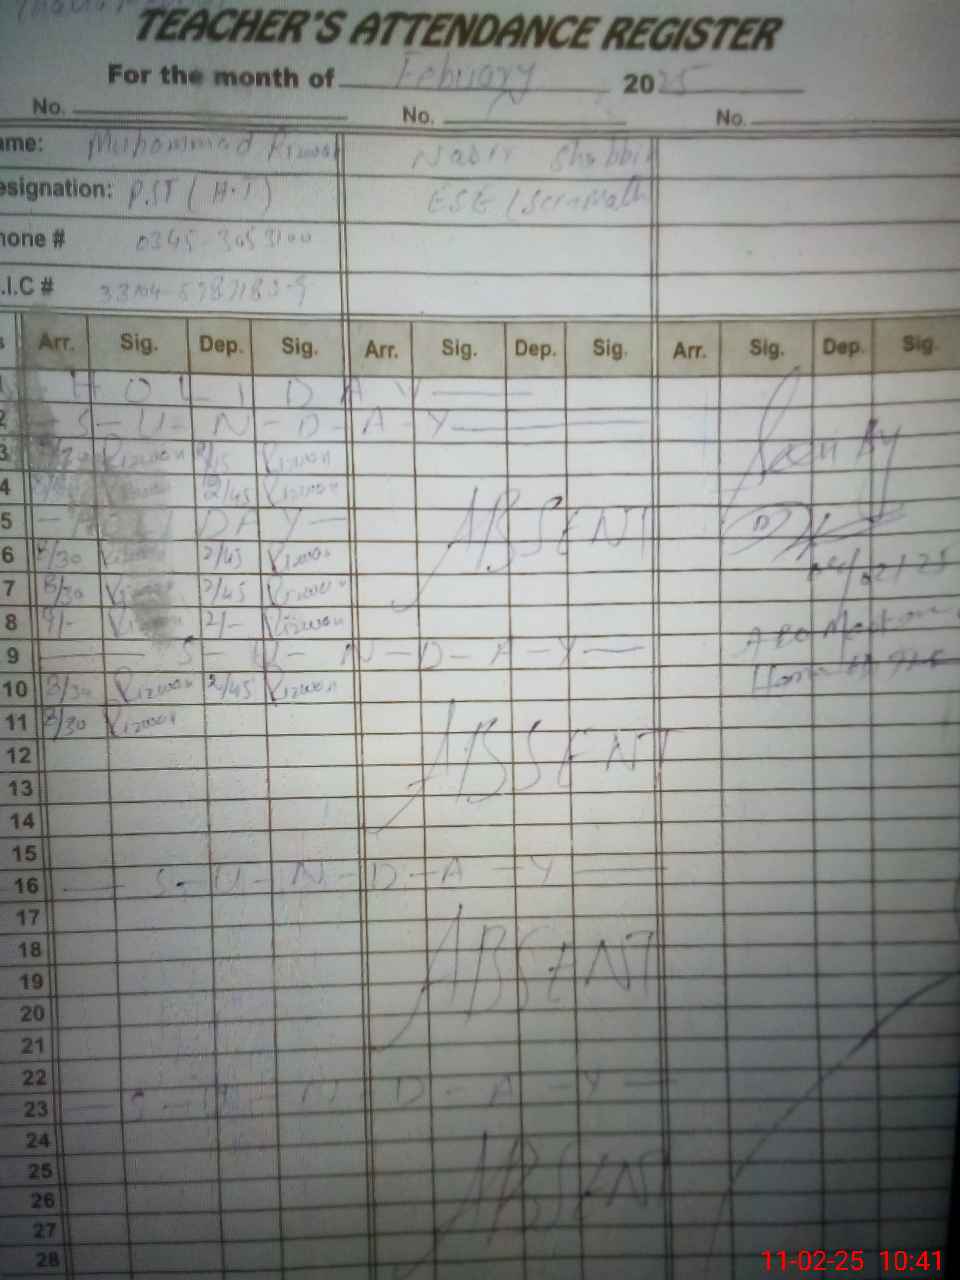 TEACHER'S ATTENDANCE REGISTER
For the month of Febuary 2025
No. No. No.
ame: Muhammad Rizwan Nadir Shabbir
esignation: P.ST ( H.T ) ESE / Scr-Math
hone #
.I.C #
s Arr. Sig. Dep. Sig. Arr. Sig. Dep. Sig. Arr. Sig. Dep. Sig.
1 H O L I D A Y
2 S - U - N - D - A - Y
3 Rizwan Rizwan
4 Rizwan 2/45 Rizwan
5 HOLIDAY ABSENT
6 8/30 Rizwan 2/45 Rizwan
7 8/30 Rizwan 2/45 Rizwan
8 9/- Rizwan 2/- Rizwan
9 S - U - N - D - A - Y
10 8/30 Rizwan 2/45 Rizwan
11 8/30 Rizwan
12 ABSENT
13
14
15
16 S - U - N - D - A - Y
17
18 ABSENT
19
20
21
22
23 S - U - N - D - A - Y
24
25
26 ABSENT
27
28
Seen By
11-02-25 10:41